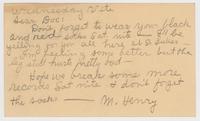 Wednesday Nite
Dear Doc:
Don't forget to wear your black
and red socks Sat. nite — I'll be
yelling for you all here at St. Lukes -
Am feeling some better but the
leg still hurts pretty bad —
Hope we break some more
records Sat nite & don't forget
the socks — M. Henry